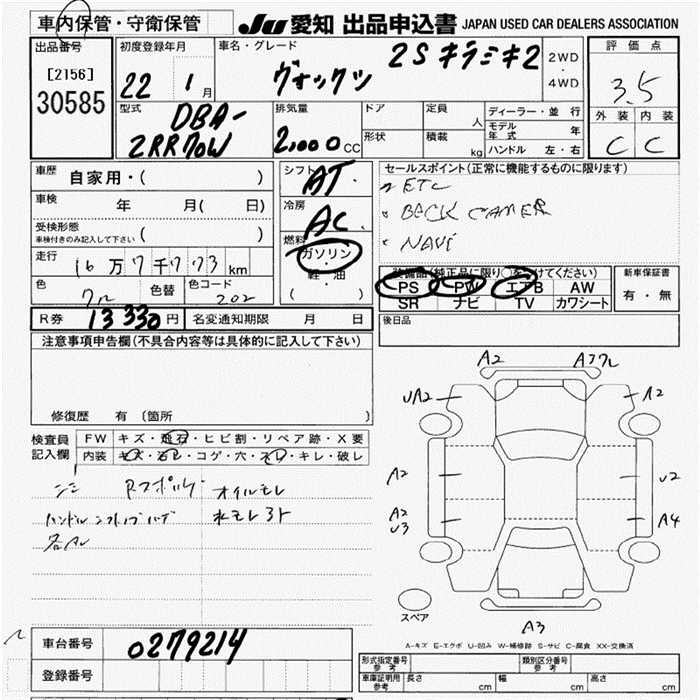 車内保管・守衛保管
JU 愛知 出品申込書 JAPAN USED CAR DEALERS ASSOCIATION
出品番号
[2156]
30585
初度登録年月
22 1 月
車名・グレード
ヴォックシ 2S キラミキ2
2WD
・
4WD
評価点
3.5
外装 内装
C C
型式
DBA-
ZRR70W
排気量
2,000 CC
ドア
形状
定員 人
積載 kg
ディーラー・並行
モデル年式 年
ハンドル 左・右
車歴
自家用・( )
車検 年 月( 日)
受検形態
車検付きのみ記入して下さい ( )
走行
16 万 7 千 7 7 3 km
色 色替 色コード
クロ 202
R券 13330 円 名変通知期限 月 日
シフト
AT
冷房
AC
燃料
ガソリン
・
軽・油
( )
セールスポイント(正常に機能するものに限ります)
・ETC
・BACK CAMER
・NAVi
装備品(純正品に限り○を付けてください)
PS PW エアB AW
SR ナビ TV カワシート
新車保証書
有・無
後日品
注意事項申告欄(不具合内容等は具体的に記入して下さい)
修復歴 有 〔箇所 〕
検査員
記入欄
FW キズ・飛石・ヒビ割・リペア跡・X要
内装 キズ・汚レ・コゲ・穴・スレ・キレ・破レ
オイルモレ
水モレ
A2
UA2
A2
A2
A2
U3
U2
A4
A3
スペア
A-キズ E-エクボ U-凹み W-補修跡 S-サビ C-腐食 XX-交換済
車台番号 0279214
登録番号
形式指定番号 参考
類別区分番号 参考
車庫証明用 参考 長さ cm 幅 cm 高さ cm